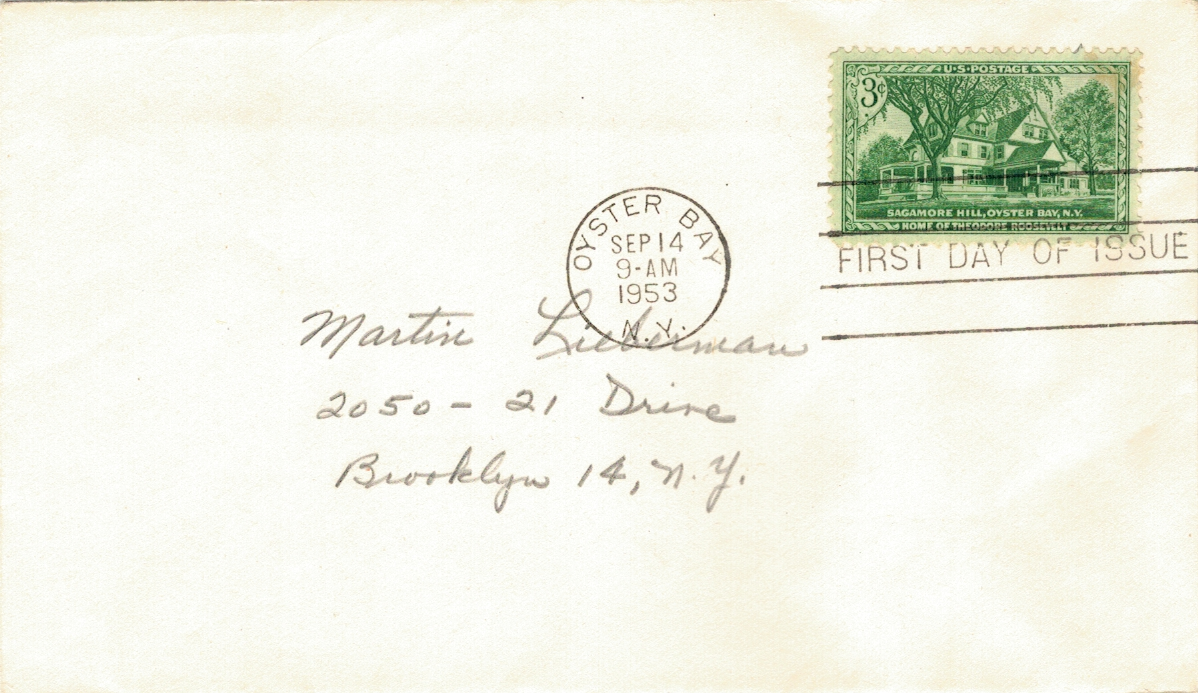 U·S·POSTAGE
3¢
SAGAMORE HILL, OYSTER BAY, N.Y.
HOME OF THEODORE ROOSEVELT
OYSTER BAY
SEP 14
9-AM
1953
N.Y.
FIRST DAY OF ISSUE
Martin Lieberman
2050 - 21 Drive
Brooklyn 14, N.Y.